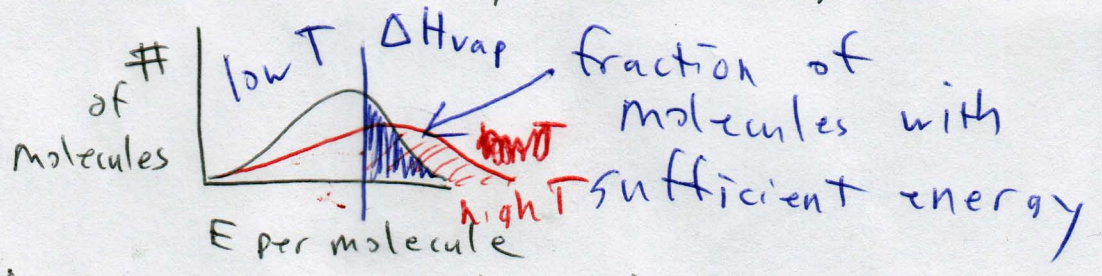 #
of
molecules
low T
ΔHvap
fraction of
molecules with
sufficient energy
high T
E per molecule